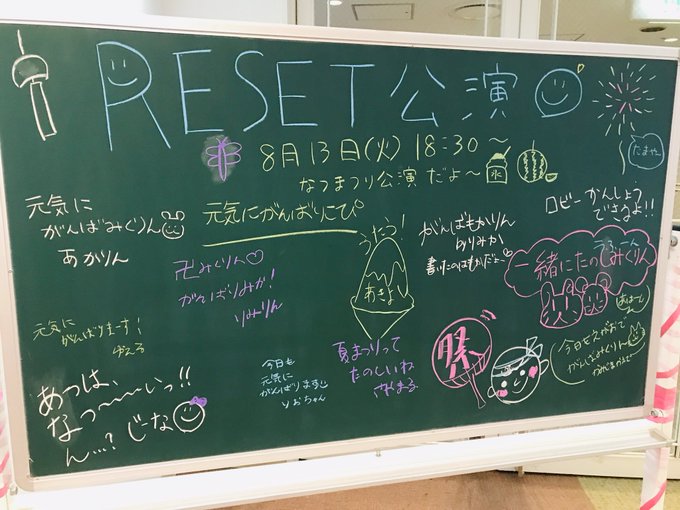 RESET公演
8月13日(火) 18:30～
なつまつり公演だよ～
氷
たまやー
元気に
がんばみぐりん
あかりん
元気にがんばりにぴ
うたう!
あきよ
がんばもかりん
byりみか
書いたのはもかだよー
ロビーかんしょう
できるよ!!
卍みぐりん♡
がんばりみか!
りみりん
一緒にたのしみぐりん
元気に
がんばりまーす!
ゆえる
夏まつりって
たのしいね
祭
今日もえがおで
がんばみぐりん
今日も
元気に
がんばります
りおちゃん
あつは、
なつ〜〜〜いっ!!
ん…? じーな